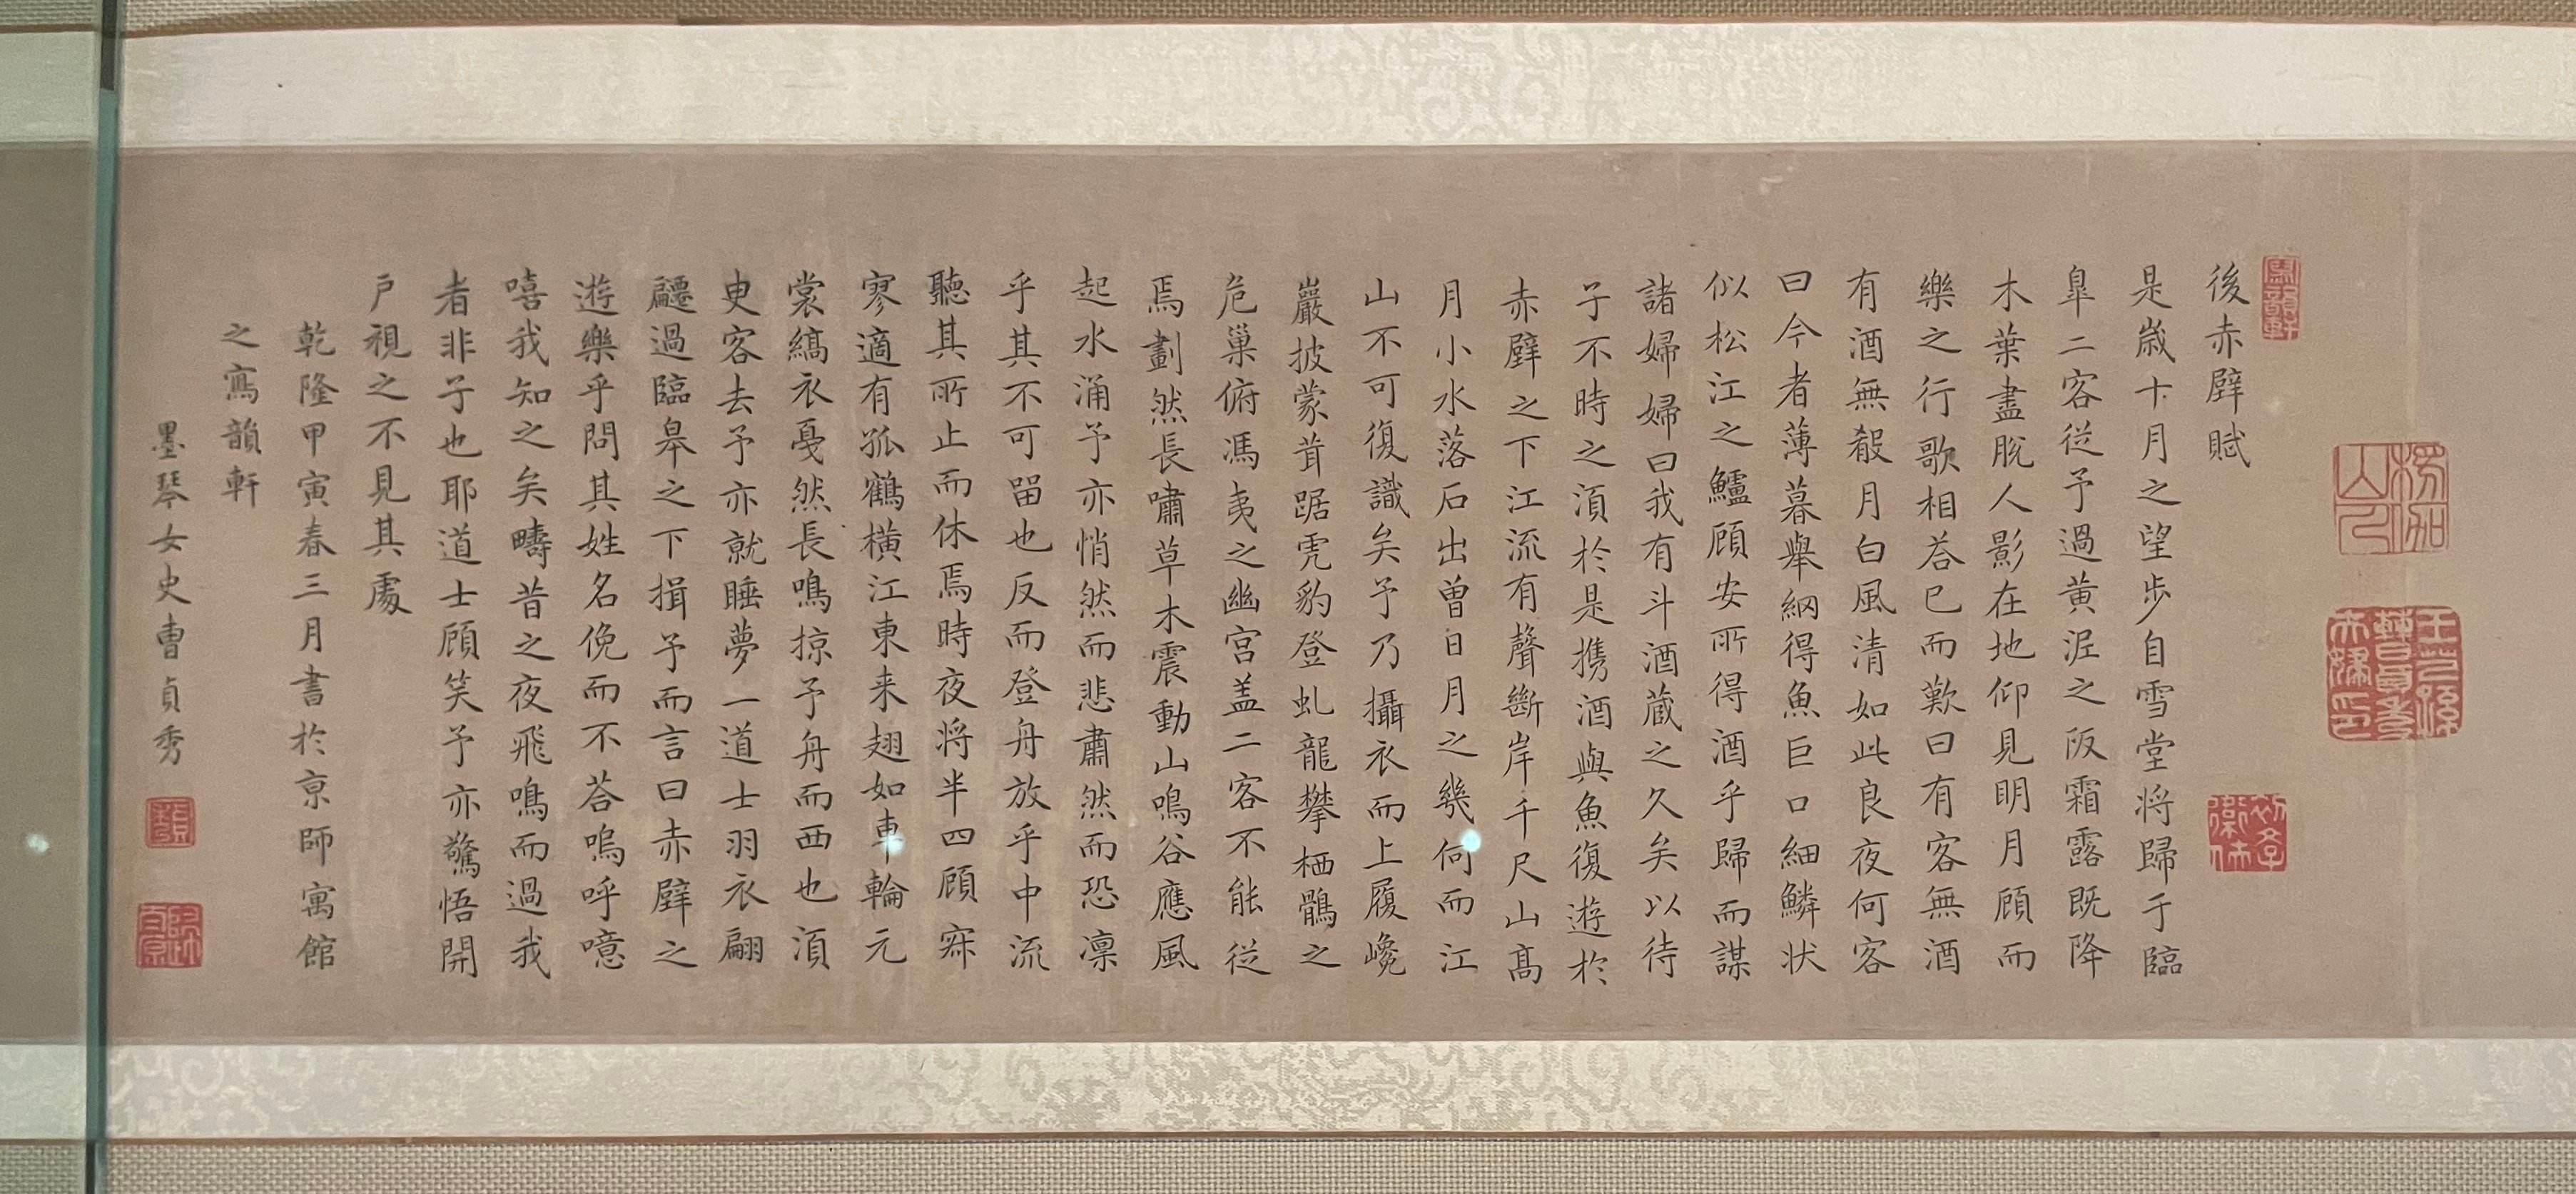 後赤壁賦
是歲十月之望步自雪堂將歸于臨
皐二客從予過黃泥之阪霜露既降
木葉盡脫人影在地仰見明月顧而
樂之行歌相荅已而歎曰有客無酒
有酒無殽月白風清如此良夜何客
曰今者薄暮舉網得魚巨口細鱗狀
似松江之鱸顧安所得酒乎歸而謀
諸婦婦曰我有斗酒藏之久矣以待
子不時之湏於是攜酒與魚復遊於
赤壁之下江流有聲斷岸千尺山髙
月小水落石出曾日月之幾何而江
山不可復識矣予乃攝衣而上履巉
巖披蒙茸踞虎豹登虬龍攀栖鶻之
危巢俯馮夷之幽宮盖二客不能從
焉劃然長嘯草木震動山鳴谷應風
起水涌予亦悄然而悲肅然而恐凛
乎其不可畱也反而登舟放乎中流
聽其所止而休焉時夜將半四顧寂
寥適有孤鶴橫江東来翅如車輪元
裳縞衣戞然長鳴掠予舟而西也湏
臾客去予亦就睡夢一道士羽衣翩
躚過臨皐之下揖予而言曰赤壁之
遊樂乎問其姓名俛而不荅嗚呼噫
嘻我知之矣疇昔之夜飛鳴而過我
者非子也耶道士顧笑予亦驚悟開
戶視之不見其處
乾隆甲寅春三月書於京師寓館
之寫韻軒
墨琴女史曹貞秀